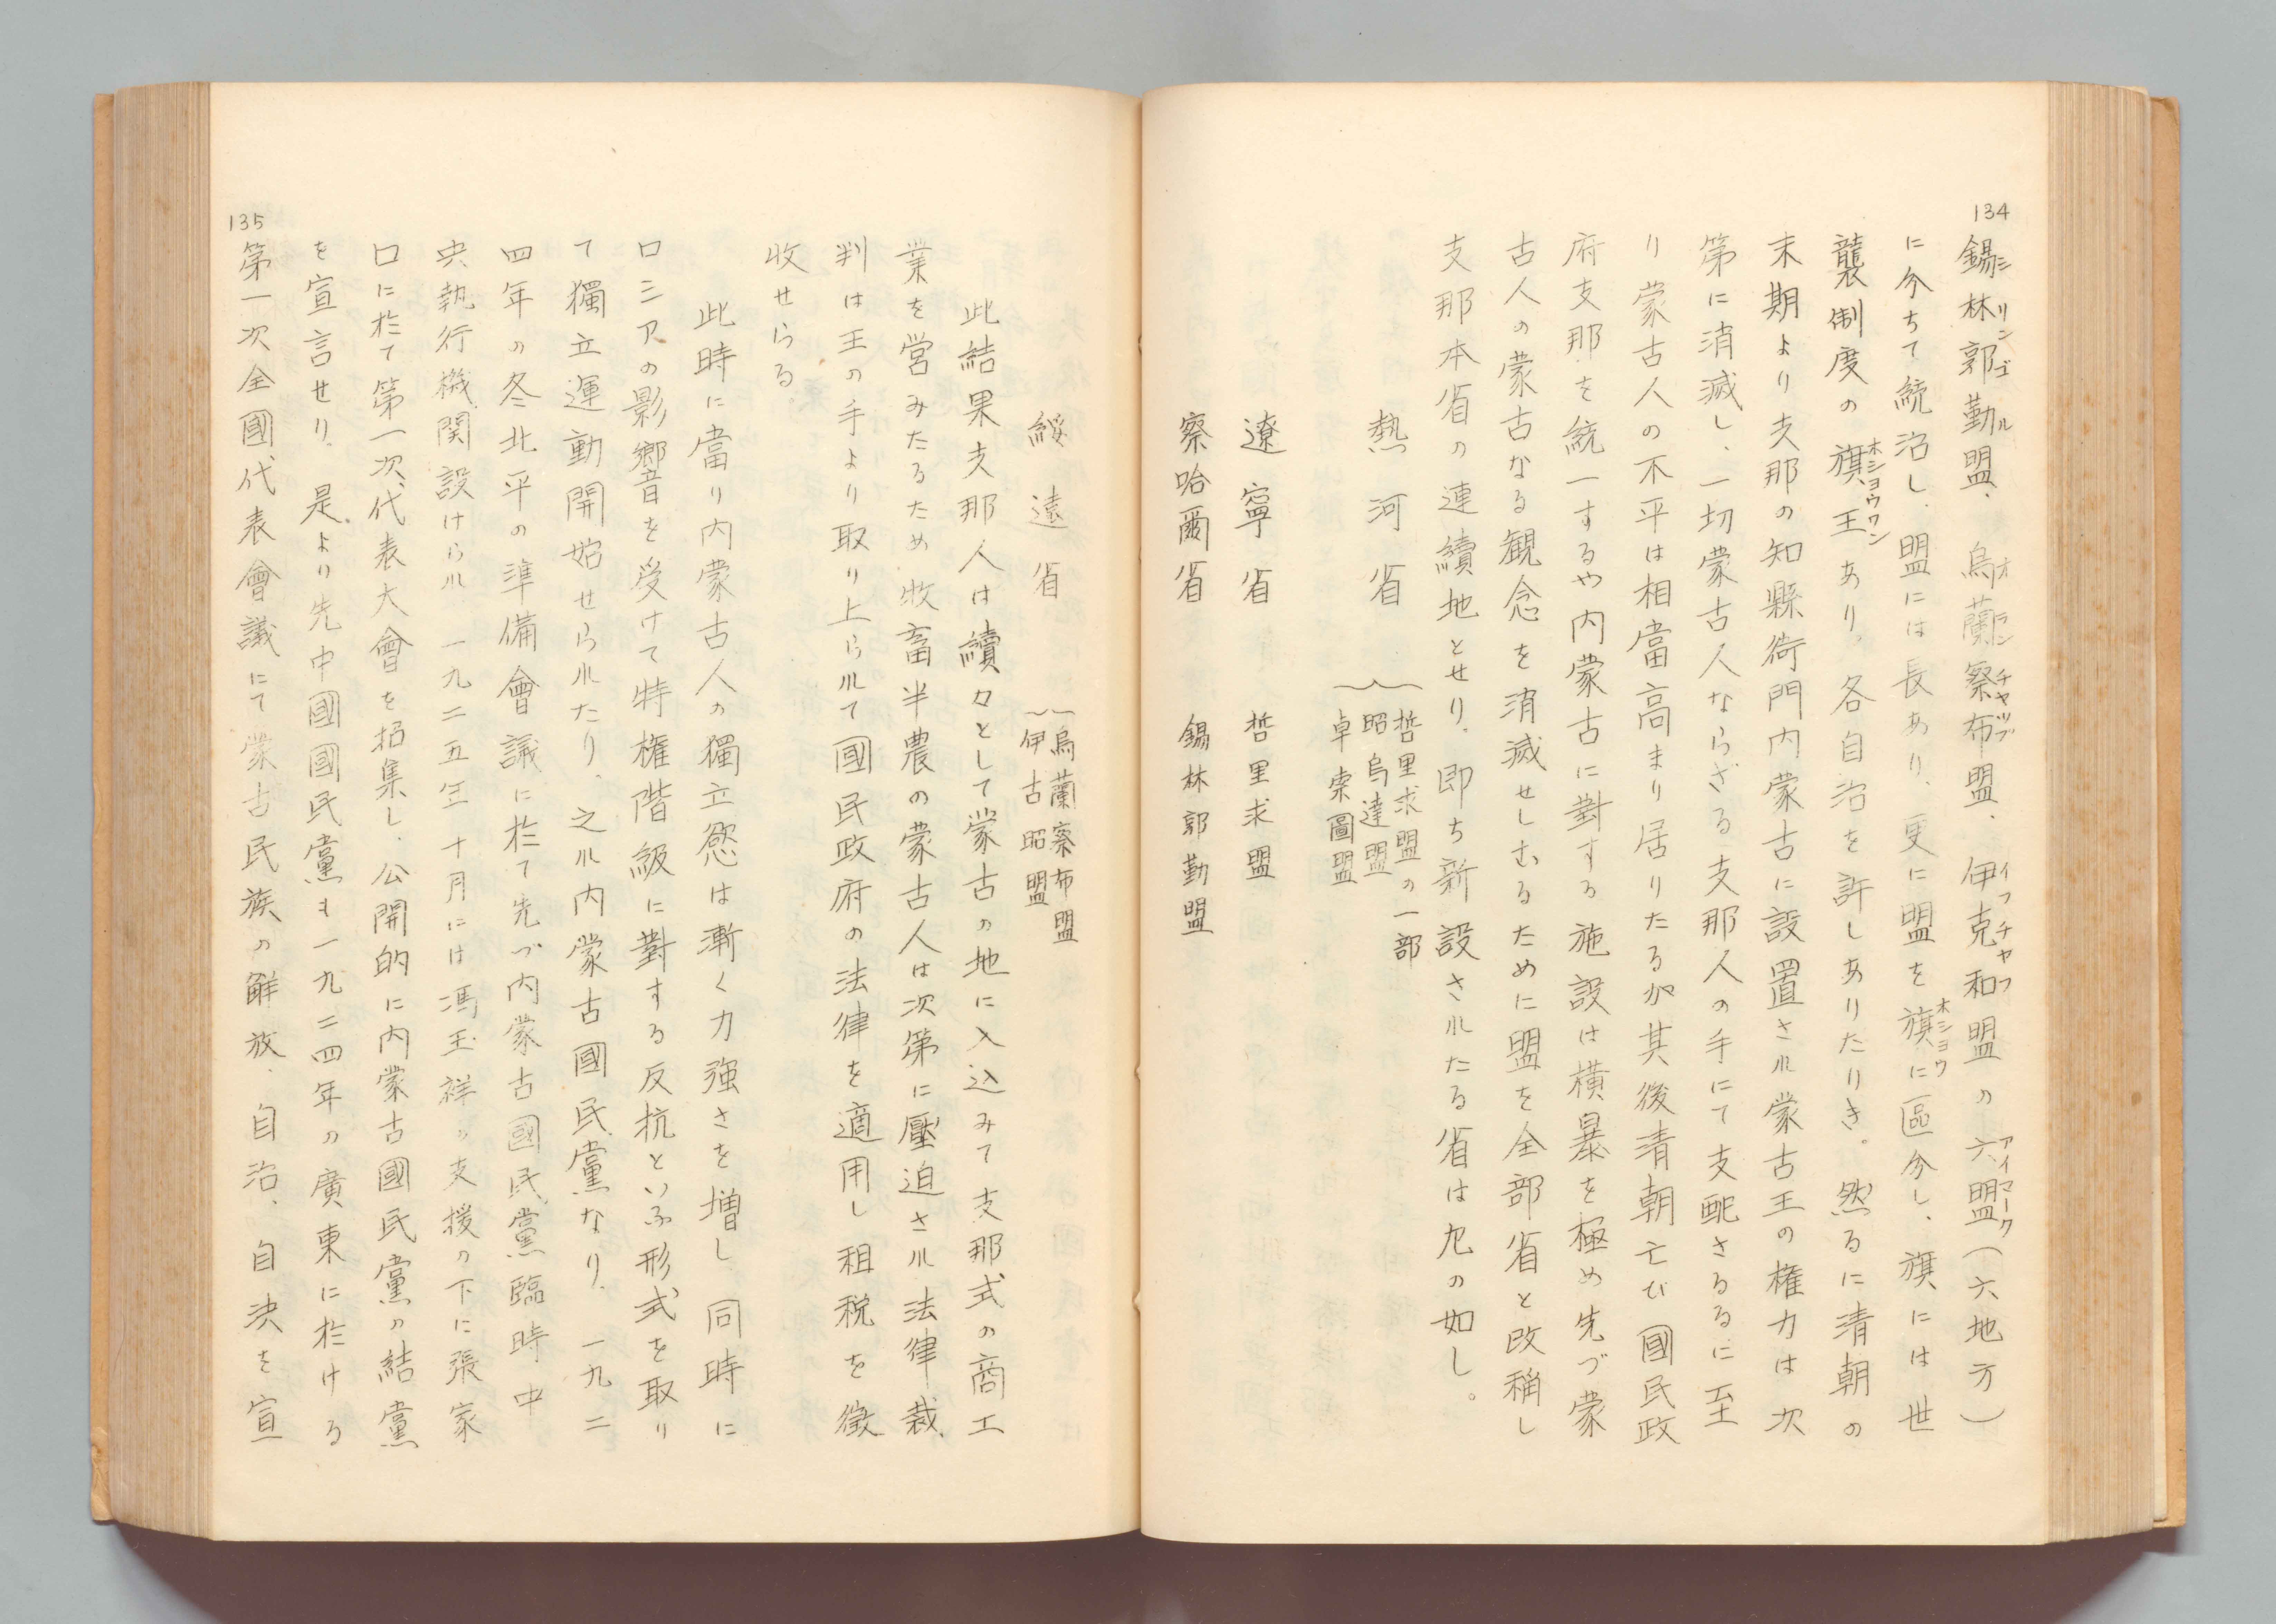 134
錫林郭勒盟、烏蘭察布盟、伊克和盟の六盟（六地方）
シリンゴル オランチャップ イフチャフ アイマーク
に分ちて統治し、盟には長あり、更に盟を旗に區分し、旗には世
ホシヨウ
襲制度の旗王あり。各自治を許しありたりき。然るに清朝の
ホシヨウワン
末期より支那の知縣衙門内蒙古に設置され蒙古王の権力は次
第に消滅し、一切蒙古人ならざる支那人の手にて支配さるるに至
り蒙古人の不平は相當高まり居りたるが其後清朝亡び國民政
府支那を統一するや内蒙古に對する施設は横暴を極め先づ蒙
古人の蒙古なる観念を消滅せしむるために盟を全部省と改稱し
支那本省の連續地とせり、即ち新設されたる省は九の如し。
熱河省
哲里求盟の一部
昭烏達盟
卓索圖盟
遼寧省 哲里求盟
察哈爾省 錫林郭勒盟
綏遠省
烏蘭察布盟
伊古昭盟
此結果支那人は續々として蒙古の地に入込みて支那式の商工
業を営みたるため牧畜半農の蒙古人は次第に壓迫され法律裁
判は王の手より取り上られて國民政府の法律を適用し租税を徴
收せらる。
此時に當り内蒙古人の獨立慾は漸く力強さを増し同時に
ロシアの影響を受けて特権階級に對する反抗といふ形式を取り
て獨立運動開始せられたり、之れ内蒙古國民黨なり、一九二
四年の冬北平の準備會議に於て先づ内蒙古國民黨臨時中
央執行機関設けられ 一九二五年十月には馮玉祥の支援の下に張家
口に於て第一次代表大會を招集し、公開的に内蒙古國民黨の結黨
を宣言せり、是より先中國國民黨も一九二四年の廣東に於ける
135
第一次全國代表會議にて蒙古民族の解放、自治、自決を宣